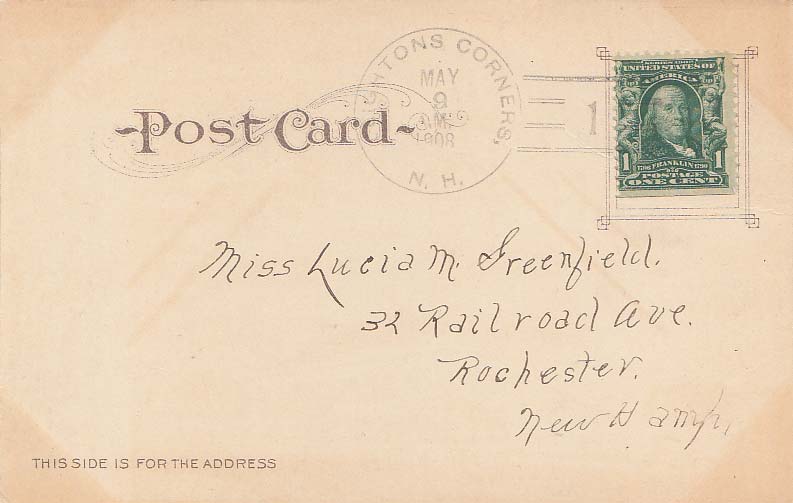 HTONS CORNERS,
MAY
9
A.M.
1908
N. H.
1
SERIES 1902
UNITED STATES OF
AMERICA
1 1706 FRANKLIN 1790 1
POSTAGE
ONE CENT
Post Card
Miss Lucia M. Greenfield.
32 Railroad Ave.
Rochester.
New Hamp.
THIS SIDE IS FOR THE ADDRESS